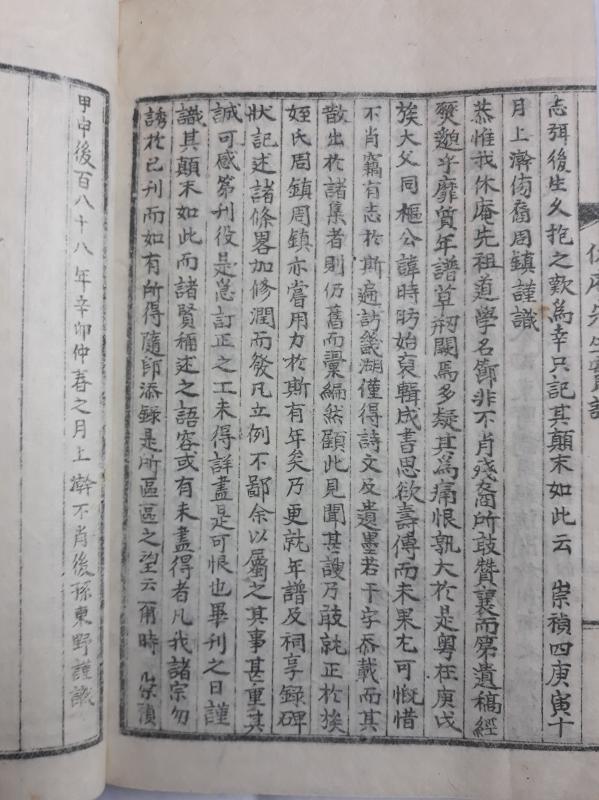 志弭後生久抱之歎爲幸只記其顚末如此云 崇禎四庚寅十
月上澣傍裔周鎭謹識
恭惟我休庵先祖道學名節非不肖殘裔所敢贊襄而第遺稿經
燹邈乎靡質年譜草刱闕焉多疑其爲痛恨孰大於是粤在庚戌
族大父同樞公諱時昉始裒輯成書思欲壽傳而未果尤可慨惜
不肖竊有志於斯遍訪畿湖僅得詩文及遺墨若干字忝載而其
散出於諸集者則仍舊而彙編然顧此見聞甚謏乃敢就正於族
姪氏周鎭周鎭亦嘗用力於斯有年矣乃更就年譜及祠享錄碑
狀記述諸條畧加修潤而發凡立例不鄙余以屬之其事甚重其
誠可感第刊役是急訂正之工未得詳盡是可恨也畢刊之日謹
識其顚末如此而諸賢稱述之語容或有未盡得者凡我諸宗勿
諉於已刊而如有所得隨卽添錄是所區區之望云爾時 崇禎
甲申後百八十八年辛卯仲春之月上澣不肖後孫東野謹識